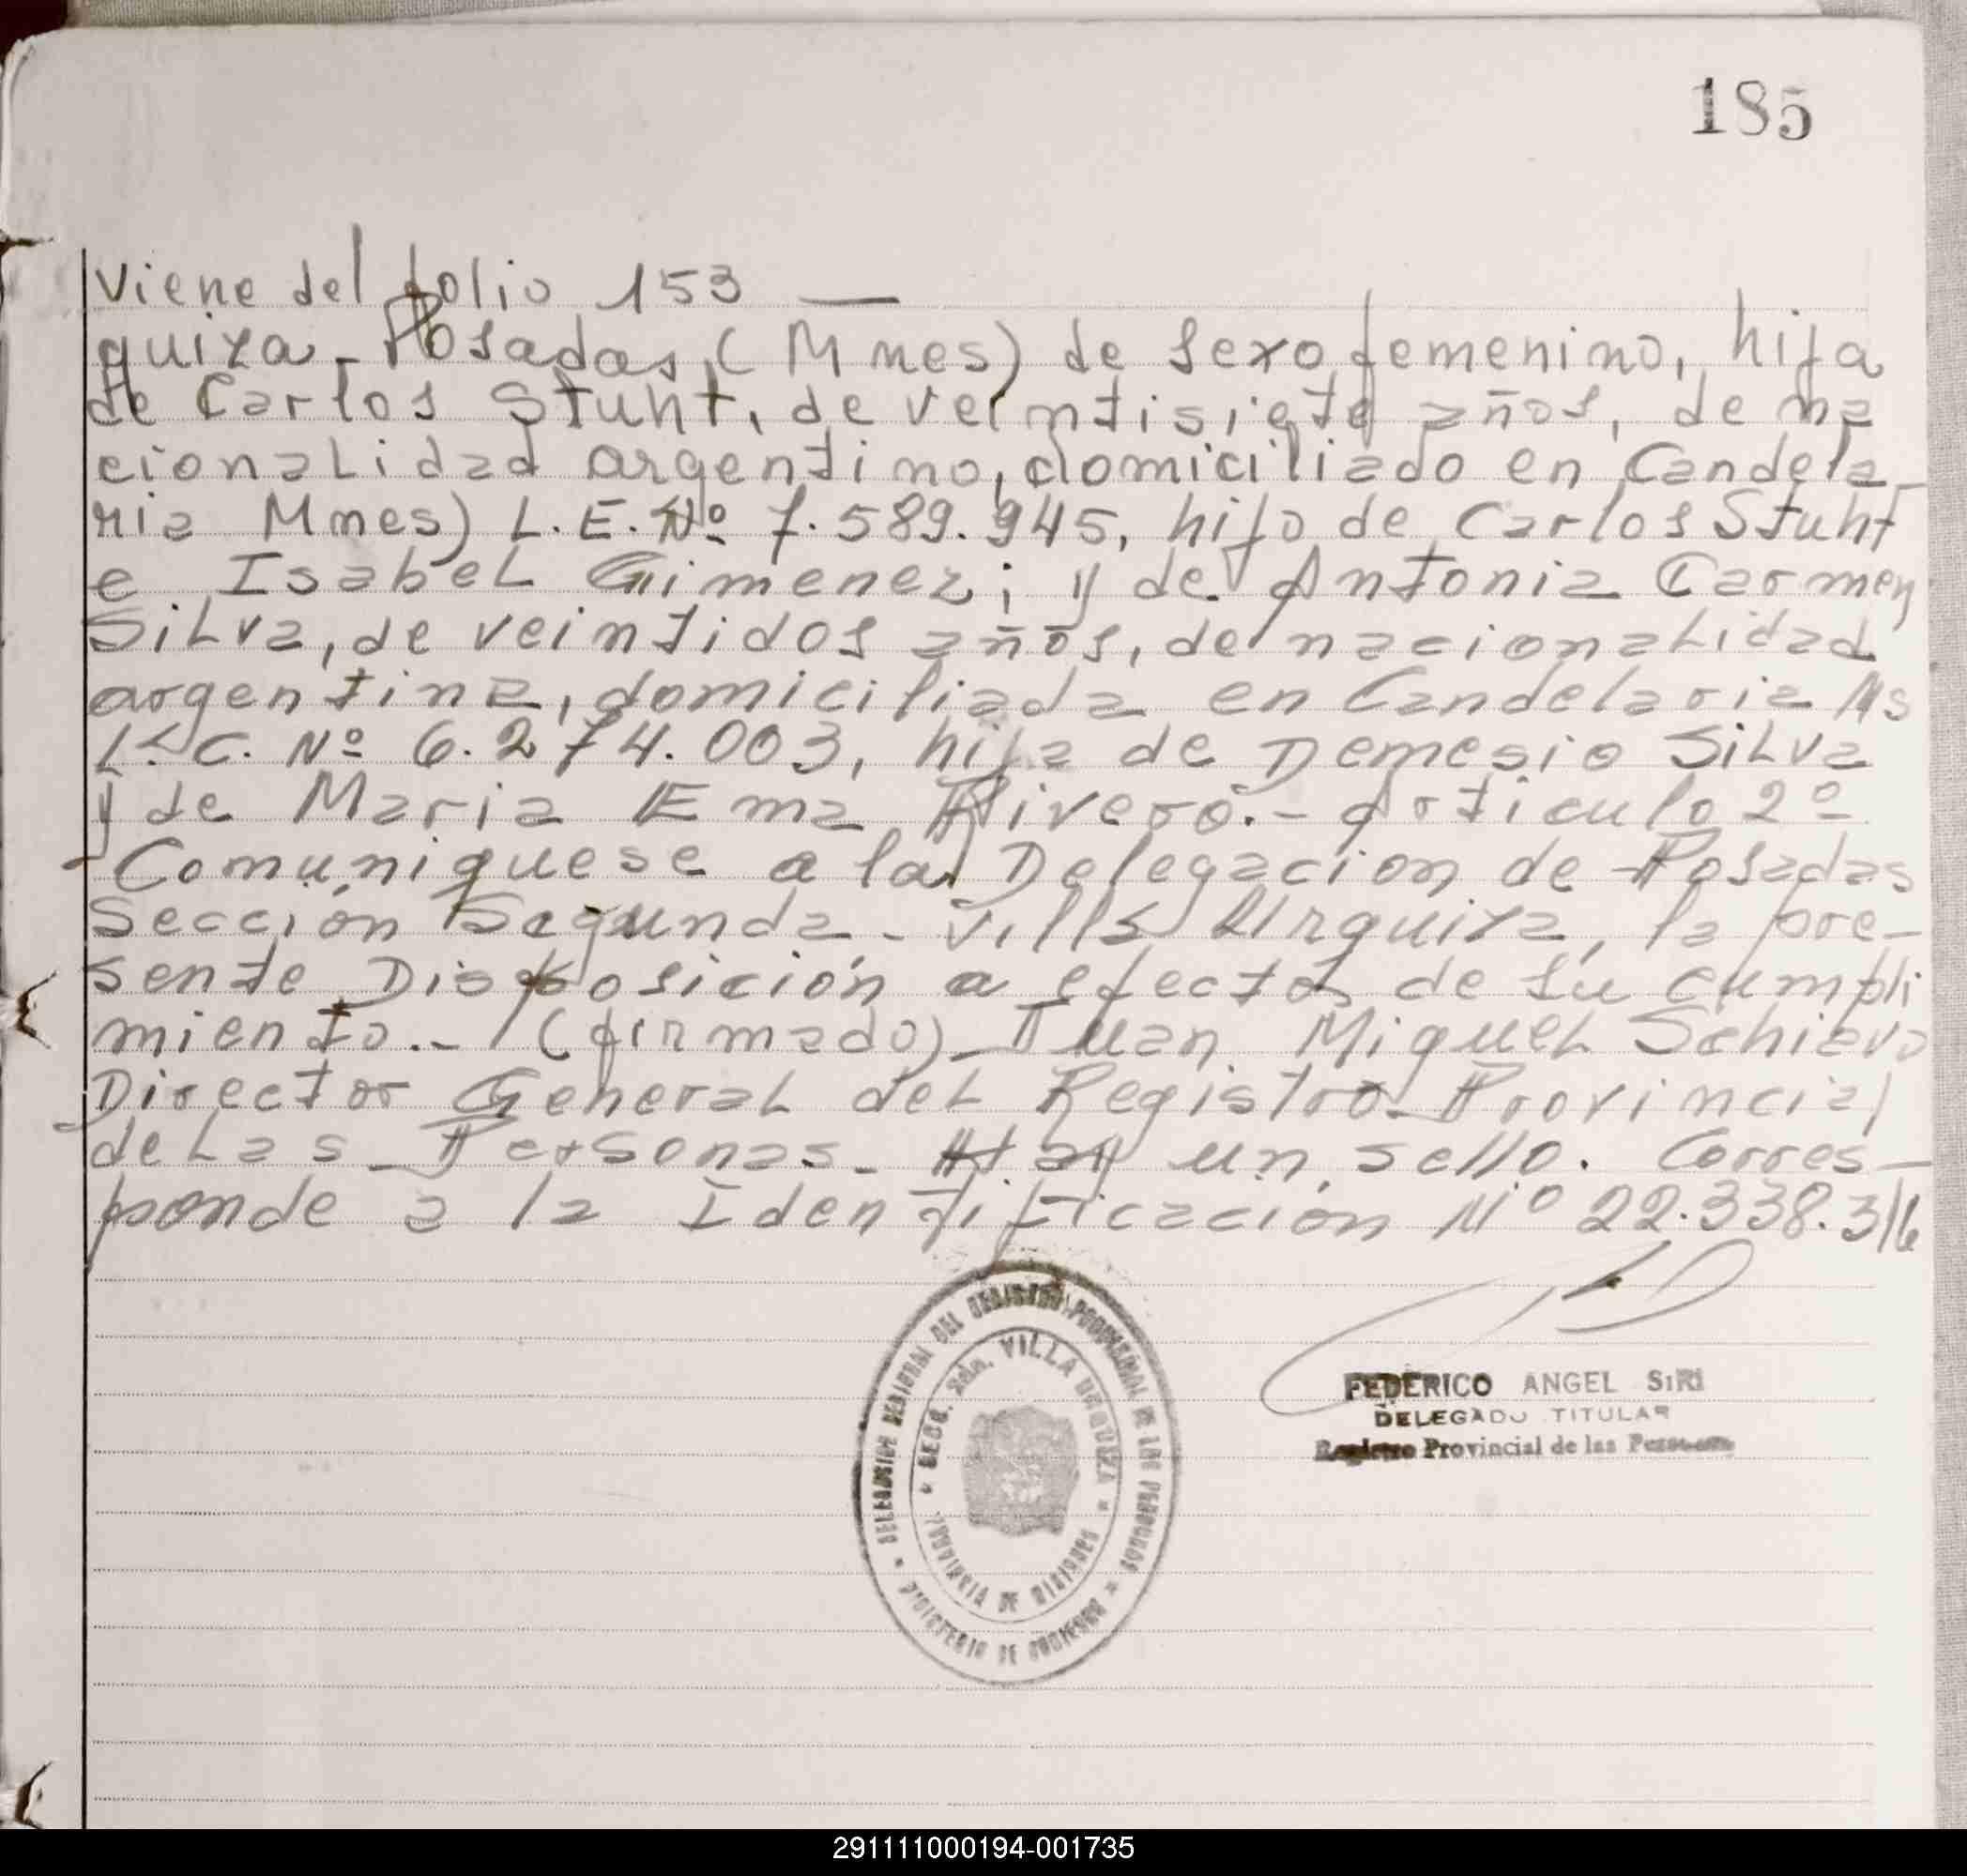 185
Viene del folio 153 —
quiza - Posadas, (Mnes) de sexo femenino, hija
de Carlos Stuht, de veintisiete años, de na
cionalidad argentino, domiciliado en Candela-
ria Mnes) L.E. Nº 7.589.945, hijo de Carlos Stuht
e Isabel Gimenez; y de Antonia Carmen
Silva, de veintidos años, de nacionalidad
argentina, domiciliada en Candelaria Ms
L.C. Nº 6.274.003, hija de Demesio Silva
y de Maria Ema Rivero.- Articulo 2º
Comuniquese a la Delegacion de Posadas
Sección Segunda - Villa Urquiza, la pre-
sente Disposición a efectos de su cumpli
miento.- (firmado) Juan Miguel Schiavo
Director General del Registro Provincial
de Las Personas. Hay un sello. Corres-
ponde a la Identificación Nº 22.338.316
DELEGACION REGIONAL DEL REGISTRO PROVINCIAL DE LAS PERSONAS * MINISTERIO DE GOBIERNO *
* SECC. 2da. VILLA URQUIZA * PROVINCIA DE MISIONES
FEDERICO ANGEL SIRI
DELEGADO TITULAR
Registro Provincial de las Personas
291111000194-001735